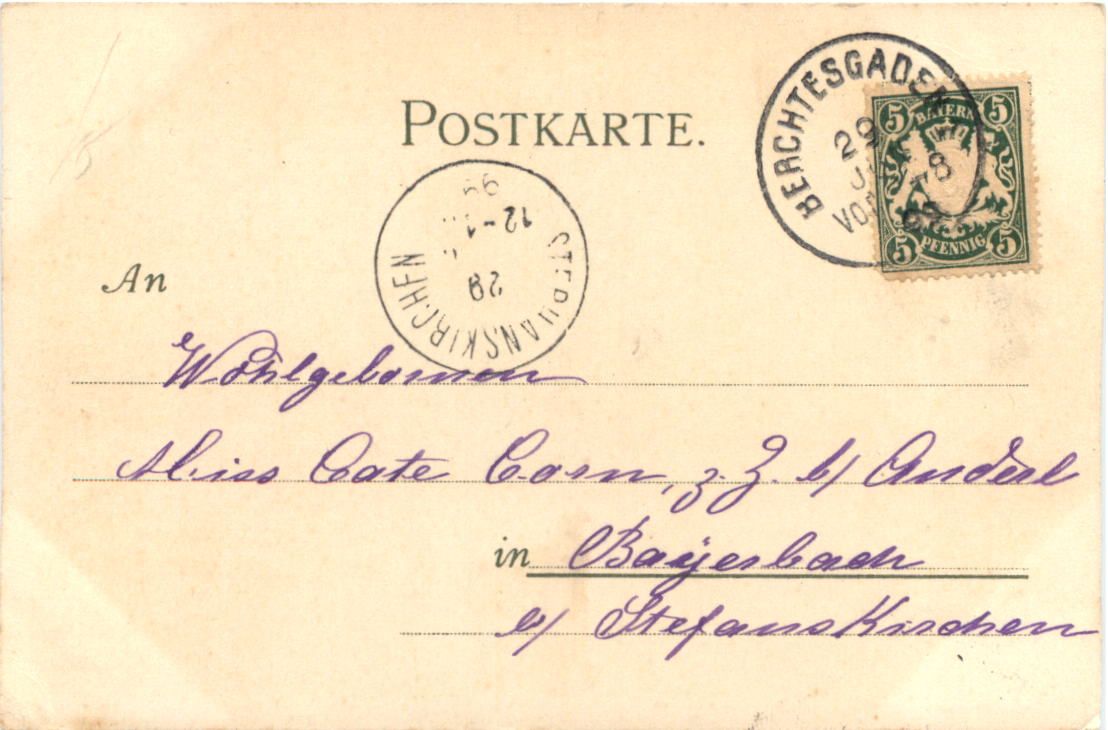 POSTKARTE.
BERCHTESGADEN
29
VOR
8
5 BAYERN 5
5 PFENNIG 5
STEPHANSKIRCHEN
29
12-1
99
An
Wohlgebornen
Miss Cate Corn, z. Z. b/ Anderl
in Bayerbach
b/ Stefanskirchen